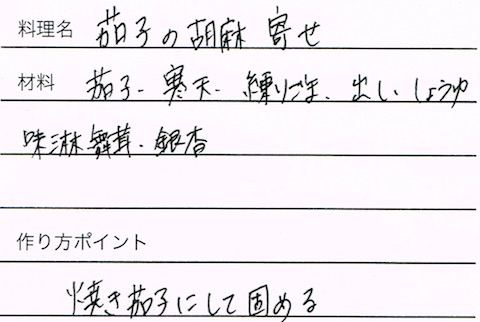 料理名 茄子の胡麻寄せ
材料 茄子.寒天.練りごま.出し.しょうゆ
味淋舞茸.銀杏
作り方ポイント
焼き茄子にして固める